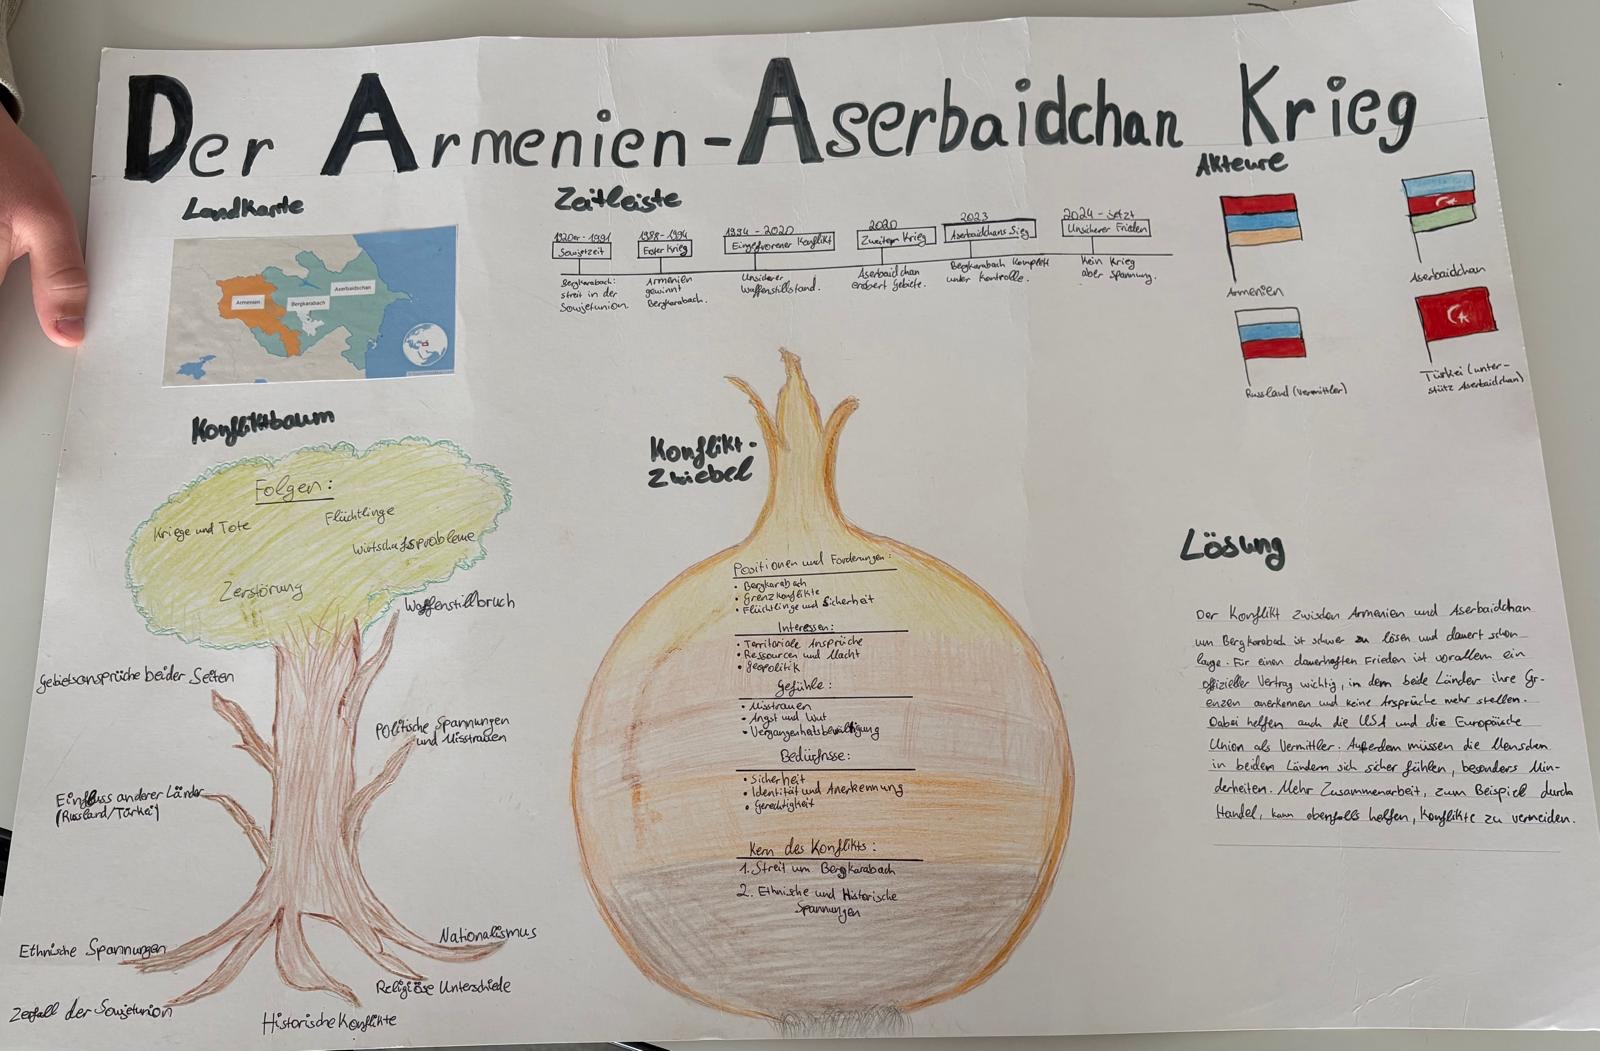 Der Armenien-Aserbaidchan Krieg
Landkarte
Armenien
Bergkarabach
Aserbaidschan
Zeitleiste
1920er-1991
Sowjetzeit
Bergkarabach:
streit in der
Sowjetunion.
1988-1994
Erster Krieg
Armenien
gewinnt
Bergkarabach.
1994-2020
Eingefrorener Konflikt
Unsicherer
Waffenstillstand.
2020
Zweiter Krieg
Aserbaidchan
erobert Gebiete.
2023
Aserbaidchans Sieg
Bergkarabach komplett
unter Kontrolle.
2024-jetzt
Unsicherer Frieden
Kein Krieg
aber Spannung.
Akteure
Armenien
Aserbaidchan
Russland (Vermittler)
Türkei (unter-
stütz Aserbaidchan)
Konfliktbaum
Folgen:
Kriege und Tote
Flüchtlinge
Wirtschafsprobleme
Zerstörung
Waffenstillbruch
Gebietsansprüche beider Seiten
Politische Spannungen
und Misstrauen
Einfluss anderer Länder
(Russland/Türkei)
Ethnische Spannungen
Nationalismus
Religiöse Unterschiede
Zerfall der Sowjetunion
Historische Konflikte
Konflikt-
Zwiebel
Positionen und Forderungen:
• Bergkarabach
• Grenzkonflikte
• Flüchtlinge und Sicherheit
Interessen:
• Territoriale Ansprüche
• Ressourcen und Macht
• Geopolitik
Gefühle:
• Misstrauen
• Angst und Wut
• Vergangenheitsbewältigung
Bedürfnisse:
• Sicherheit
• Identität und Anerkennung
• Gerechtigkeit
Kern des Konflikts:
1. Streit um Bergkarabach
2. Ethnische und Historische
Spannungen
Lösung
Der Konflikt zwisden Armenien und Aserbaidchan
um Bergkarabach ist schwer zu lösen und dauert schon
lange. Für einen dauerhaften Frieden ist vorallem ein
offizieller Vertrag wichtig, in dem beide Länder ihre Gr-
enzen anerkennen und keine Ansprüche mehr stellen.
Dabei helfen auch die USA und die Europäische
Union als Vermittler. Außerdem müssen die Menschen
in beiden Ländern sich sicher fühlen, besonders Min-
derheiten. Mehr Zusammenarbeit, zum Beispiel durch
Handel, kann ebenfalls helfen, Konflikte zu vermeiden.